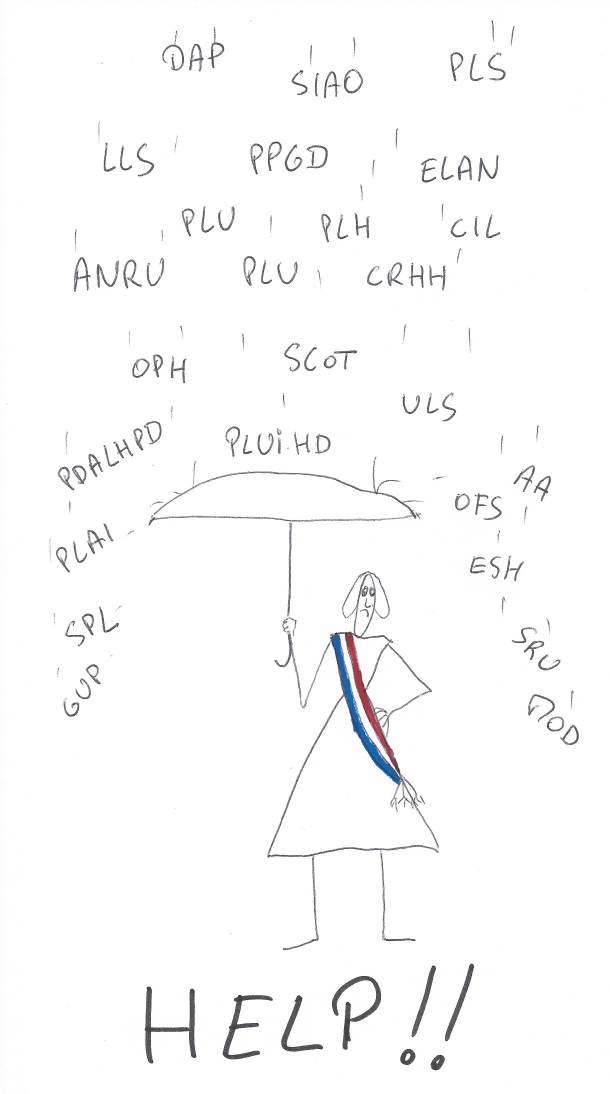 DAP SIAO PLS
LLS PPGD ELAN
PLU PLH CIL
ANRU PLU CRHH
OPH SCOT
ULS
PDALHPD PLUi.HD AA
OFS
PLAI ESH
SPL SRU
GUP MOD
HELP!!